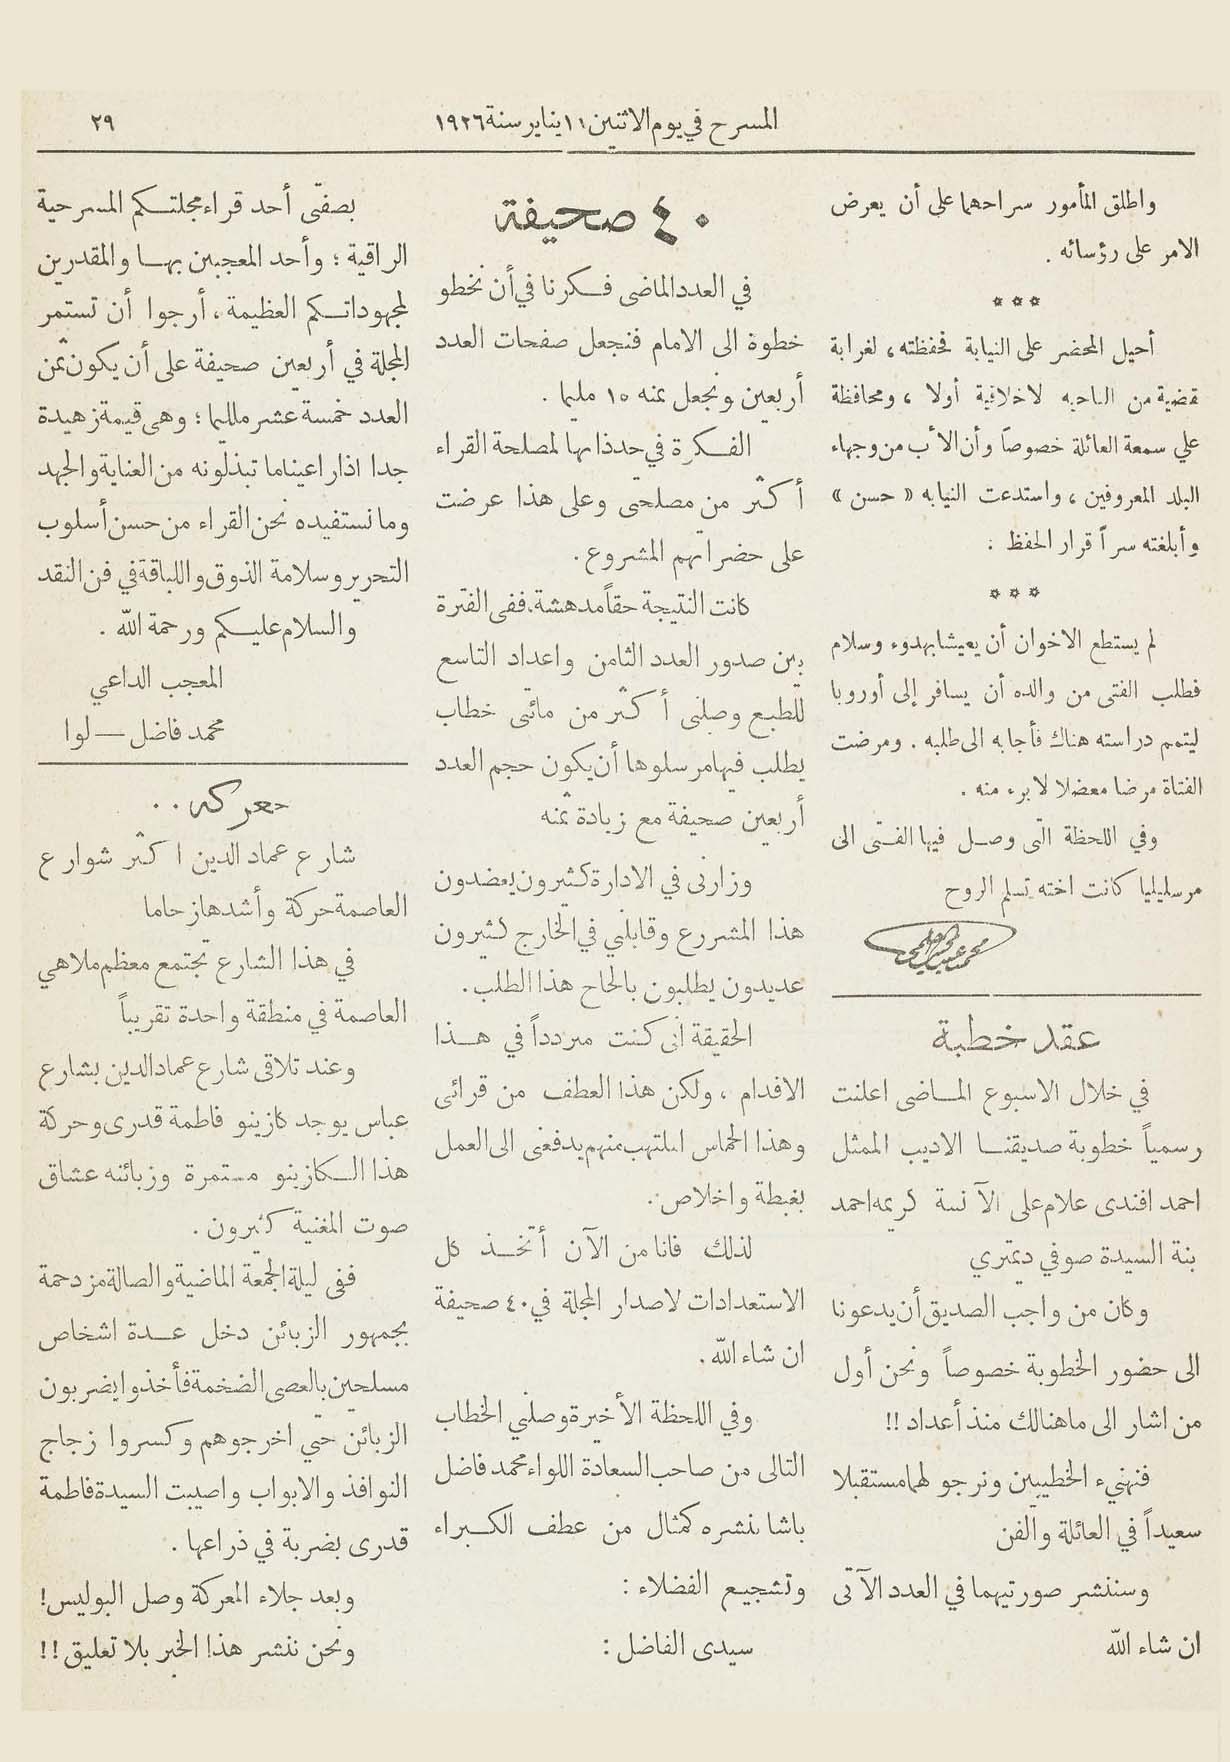 المسرح في يوم الاثنين ١١ يناير سنة ١٩٢٦
٢٩
واطلق المأمور سراحهما على أن يعرض
الامر على رؤسائه .
* * *
أحيل المحضر على النيابة فحفظته، لغرابة
قضية من الناحيه لاخلاقية أولا ، ومحافظة
علي سمعة العائلة خصوصاً وأن الأب من وجهاء
البلد المعروفين ، واستدعت النيابه « حسن »
وأبلغته سراً قرار الحفظ .
* * *
لم يستطع الاخوان أن يعيشا بهدوء وسلام
فطلب الفتى من والده أن يسافر إلى أوروبا
ليتمم دراسته هناك فأجابه الى طلبه . ومرضت
الفتاة مرضا معضلا لا برء منه .
وفي اللحظة التى وصل فيها الفتى الى
مرسليليا كانت اخته تسلم الروح
عقد خطبة
في خلال الاسبوع الماضى اعلنت
رسمياً خطوبة صديقنا الاديب الممثل
احمد افندى علام على الآنسة كريمه احمد
بنة السيدة صوفي ديمتري
وكان من واجب الصديق أن يدعونا
الى حضور الخطوبة خصوصاً ونحن أول
من اشار الى ما هنالك منذ أعداد !!
فنهنيء الخطيبين ونرجو لهما مستقبلا
سعيداً في العائلة والفن
وسننشر صورتيهما في العدد الآتى
ان شاء الله
٤٠ صحيفة
في العدد الماضى فكرنا في أن نخطو
خطوة الى الامام فنجعل صفحات العدد
أربعين ونجعل ثمنه ١٥ مليما .
الفكرة في حد ذاتها لمصلحة القراء
أكثر من مصلحتى وعلى هذا عرضت
على حضراتهم المشروع .
كانت النتيجة حقاً مدهشة، ففى الفترة
بين صدور العدد الثامن واعداد التاسع
للطبع وصلنى أكثر من مائتى خطاب
يطلب فيها مرسلوها أن يكون حجم العدد
أربعين صحيفة مع زيادة ثمنه
وزارنى في الادارة كثيرون يعضدون
هذا المشررع وقابلني في الخارج كثيرون
عديدون يطلبون بالحاح هذا الطلب .
الحقيقة أنى كنت مترددا في هذا
الاقدام ، ولكن هذا العطف من قرائى
وهذا الحماس الملتهب منهم يدفعنى الى العمل
بغبطة واخلاص .
لذلك فانا من الآن أتخذ كل
الاستعدادات لاصدار المجلة في ٤٠ صحيفة
ان شاء الله .
وفي اللحظة الأخيرة وصلني الخطاب
التالى من صاحب السعادة اللواء محمد فاضل
باشا ننشره كمثال من عطف الكبراء
وتشجيع الفضلاء :
سيدى الفاضل :
بصفتى أحد قراء مجلتكم المسرحية
الراقية ؛ وأحد المعجبين بها والمقدرين
لمجهوداتكم العظيمة ، أرجوا أن تستمر
المجلة في أربعين صحيفة على أن يكون ثمن
العدد خمسة عشر ملليما ؛ وهى قيمة زهيدة
جدا اذا راعينا ما تبذلونه من العناية والجهد
وما نستفيده نحن القراء من حسن أسلوب
التحرير وسلامة الذوق واللباقة في فن النقد
والسلام عليكم ورحمة الله .
المعجب الداعي
محمد فاضل — لوا
معركه . .
شارع عماد الدين اكثر شوارع
العاصمة حركة وأشدها زحاما
في هذا الشارع تجتمع معظم ملاهي
العاصمة في منطقة واحدة تقريباً
وعند تلاقى شارع عماد الدين بشارع
عباس يوجد كازينو فاطمة قدرى وحركة
هذا الكازينو مستمرة وزبائنه عشاق
صوت المغنية كثيرون .
ففى ليلة الجمعة الماضية والصالة مزدحمة
بجمهور الزبائن دخل عدة اشخاص
مسلحين بالعصى الضخمة فأخذوا يضربون
الزبائن حتي اخرجوهم وكسروا زجاج
النوافذ والابواب واصيبت السيدة فاطمة
قدرى بضربة في ذراعها .
وبعد جلاء المعركة وصل البوليس !
ونحن ننشر هذا الخبر بلا تعليق !!